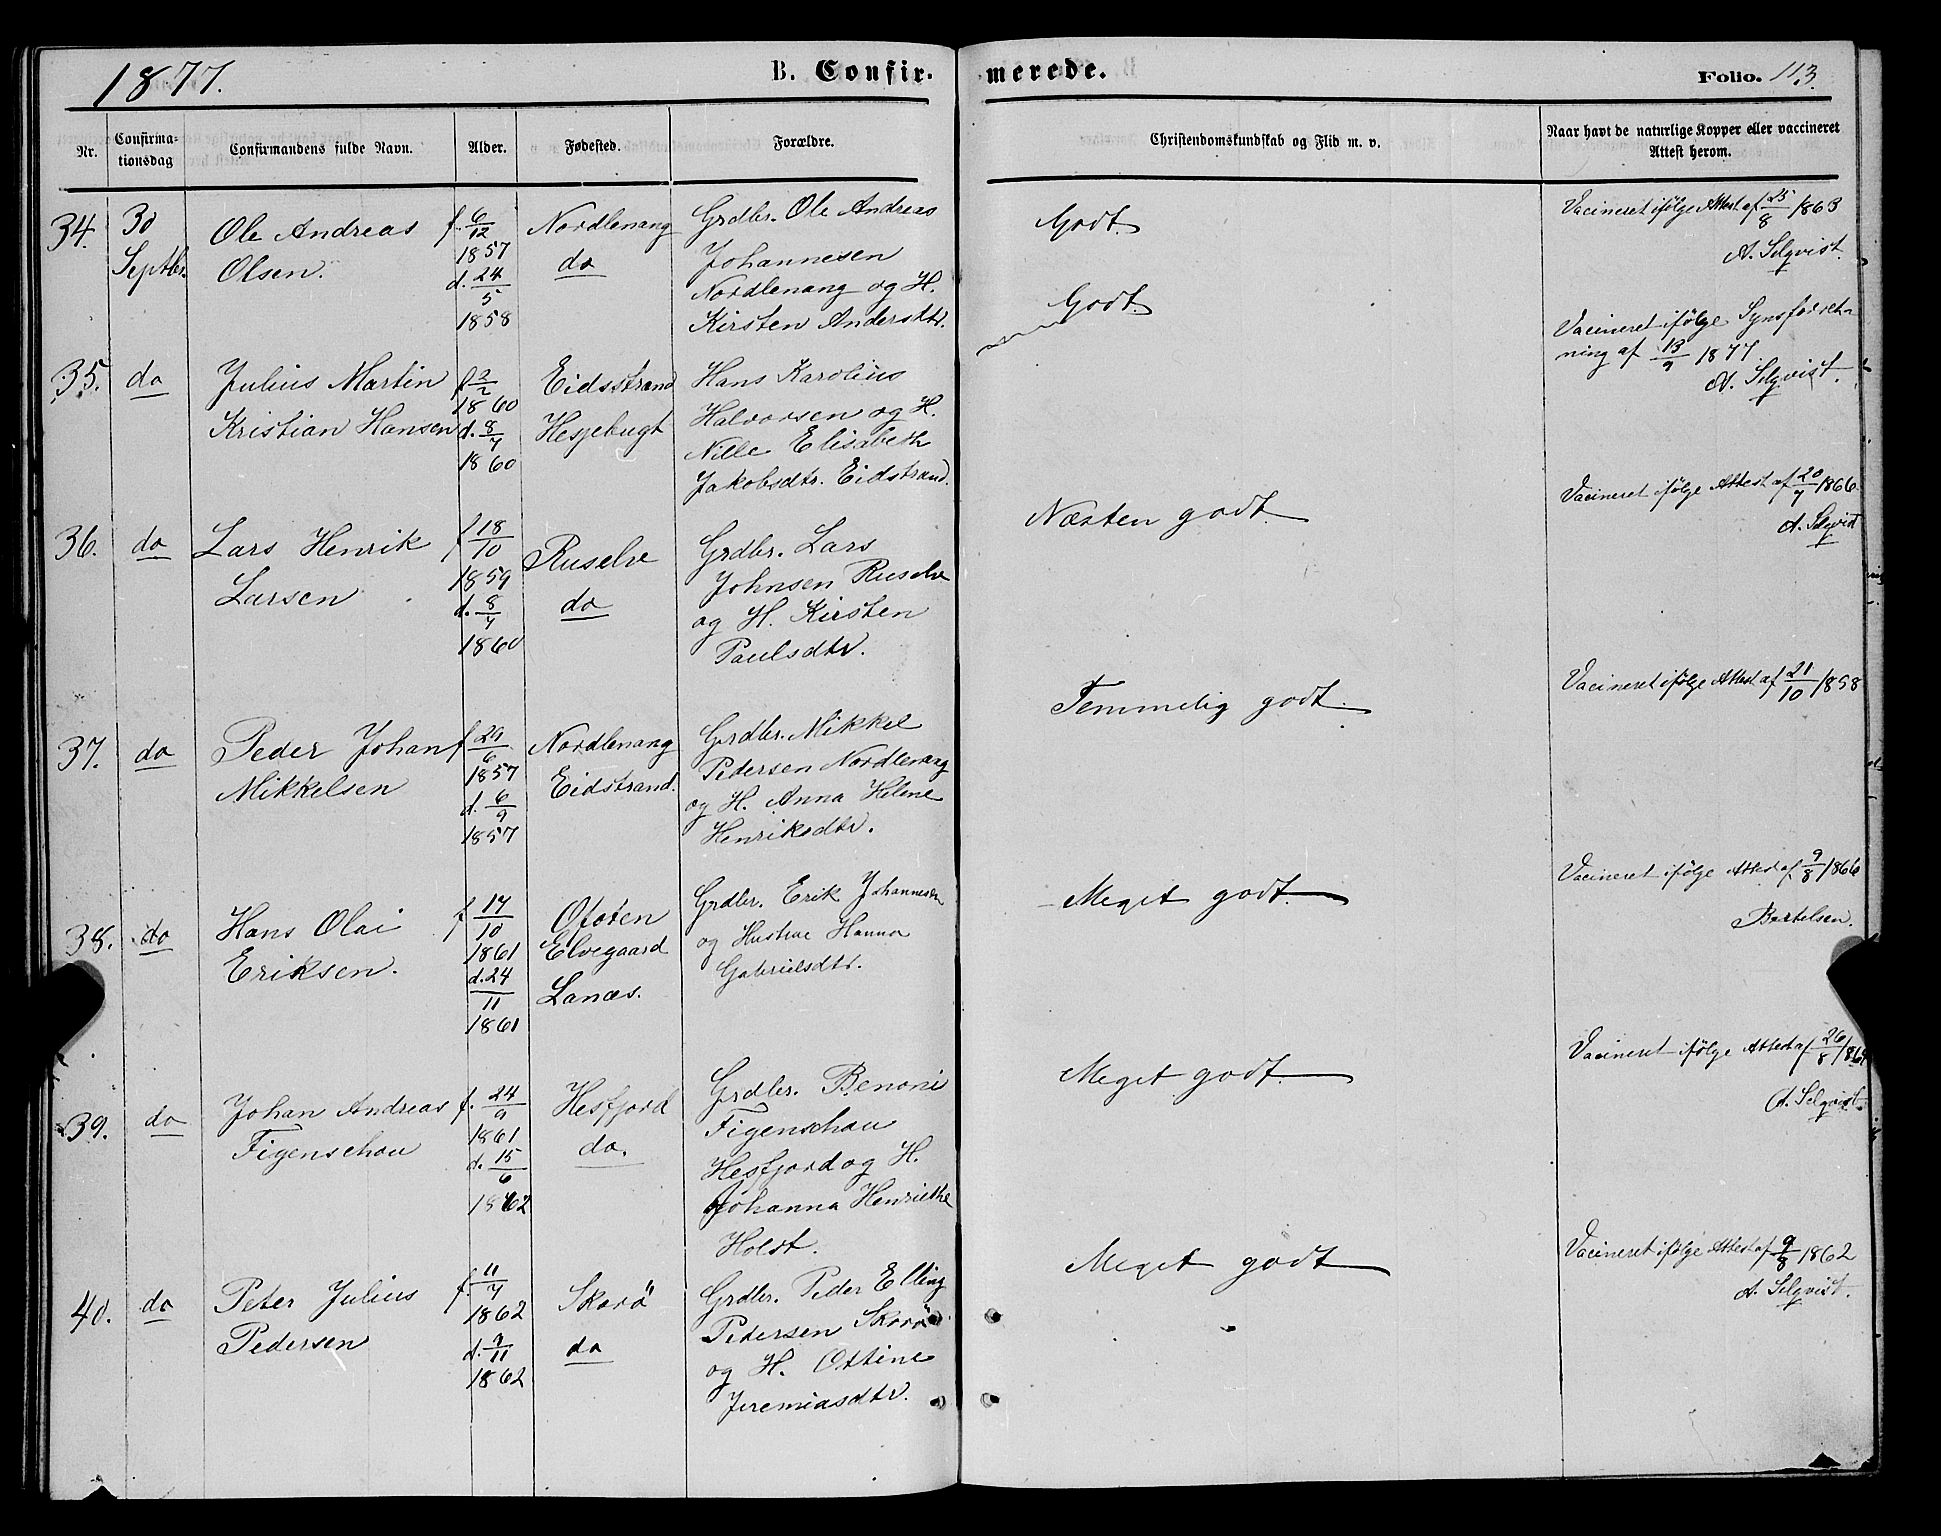 1877.
B. Confir-
merede.
Folio. 113.
Nr.
Confirma-
tionsdag
Confirmandens fulde Navn.
Alder.
Fødested.
Forældre.
Christendomskundskab og Flid m. v.
Naar havt de naturlige Kopper eller vaccineret
Attest herom.
34.
30
Septbr.
Ole Andreas
Olsen.
f. 6/12
1857
d. 24/5
1858
Nordlenang
do
Grdbr. Ole Andreas
Johannesen
Nordlenang og H.
Kirsten Andersdtr.
Godt.
Vacineret ifølge Attest af 25/8 1863
A. Selqvist.
35.
do
Julius Martin
Kristian Hansen
f 2/2
1860
d. 8/7
1860
Eidsstrand
Hesjebugt
Hans Karolius
Halvorsen og H.
Nille Elisabeth
Jakobsdtr. Eidstrand.
Godt.
Vacineret ifølge Synsforret-
ning af 13/9 1877
A. Selqvist.
36.
do
Lars Henrik
Larsen
f 18/10
1859
d. 8/7
1860
Ruselve
do
Grdbr. Lars
Johnsen Ruselve
og H. Kirsten
Paulsdtr.
Næsten godt.
Vacineret ifølge Attest af 20/7 1866
A. Selqvist
37.
do
Peder Johan
Mikkelsen
f 29/6
1857
d. 6/9
1857
Nordlenang
Eidstrand.
Grdbr. Mikkel
Pedersen Nordlenang
og H. Anna Helene
Henriksdtr.
Temmelig godt.
Vacineret ifølge Attest af 21/10 1858
38.
do
Hans Olai
Eriksen.
f 17/10
1861
d. 24/11
1861
Ofoten
Elvegaard
Lanæs.
Grdbr. Erik Johannesen
og Hustrue Hanna
Gabrielsdtr.
Meget godt.
Vacineret ifølge Attest af 9/8 1866
Bertelsen.
39.
do
Johan Andreas
Figenschou
f. 24/9
1861
d. 15/6
1862
Hesfjord
do.
Grdbr. Benoni
Figenschou
Hesfjord og H.
Johanna Henriethe
Holst.
Meget godt.
Vacineret ifølge Attest af 26/8
A. Selqvist.
40.
do
Peter Julius
Pedersen
f. 11/7
1862
d. 9/11
1862
Skorö
do
Grdbr. Peder Elling
Pedersen Skorö
og H. Ottine
Jeremiasdtr.
Meget godt
Vacineret ifølge Attest af 9/8 1862
A. Selqvist.